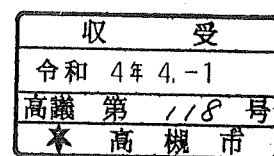 収 受
令和 4年 4.-1
高議 第 118 号
★ 高槻市